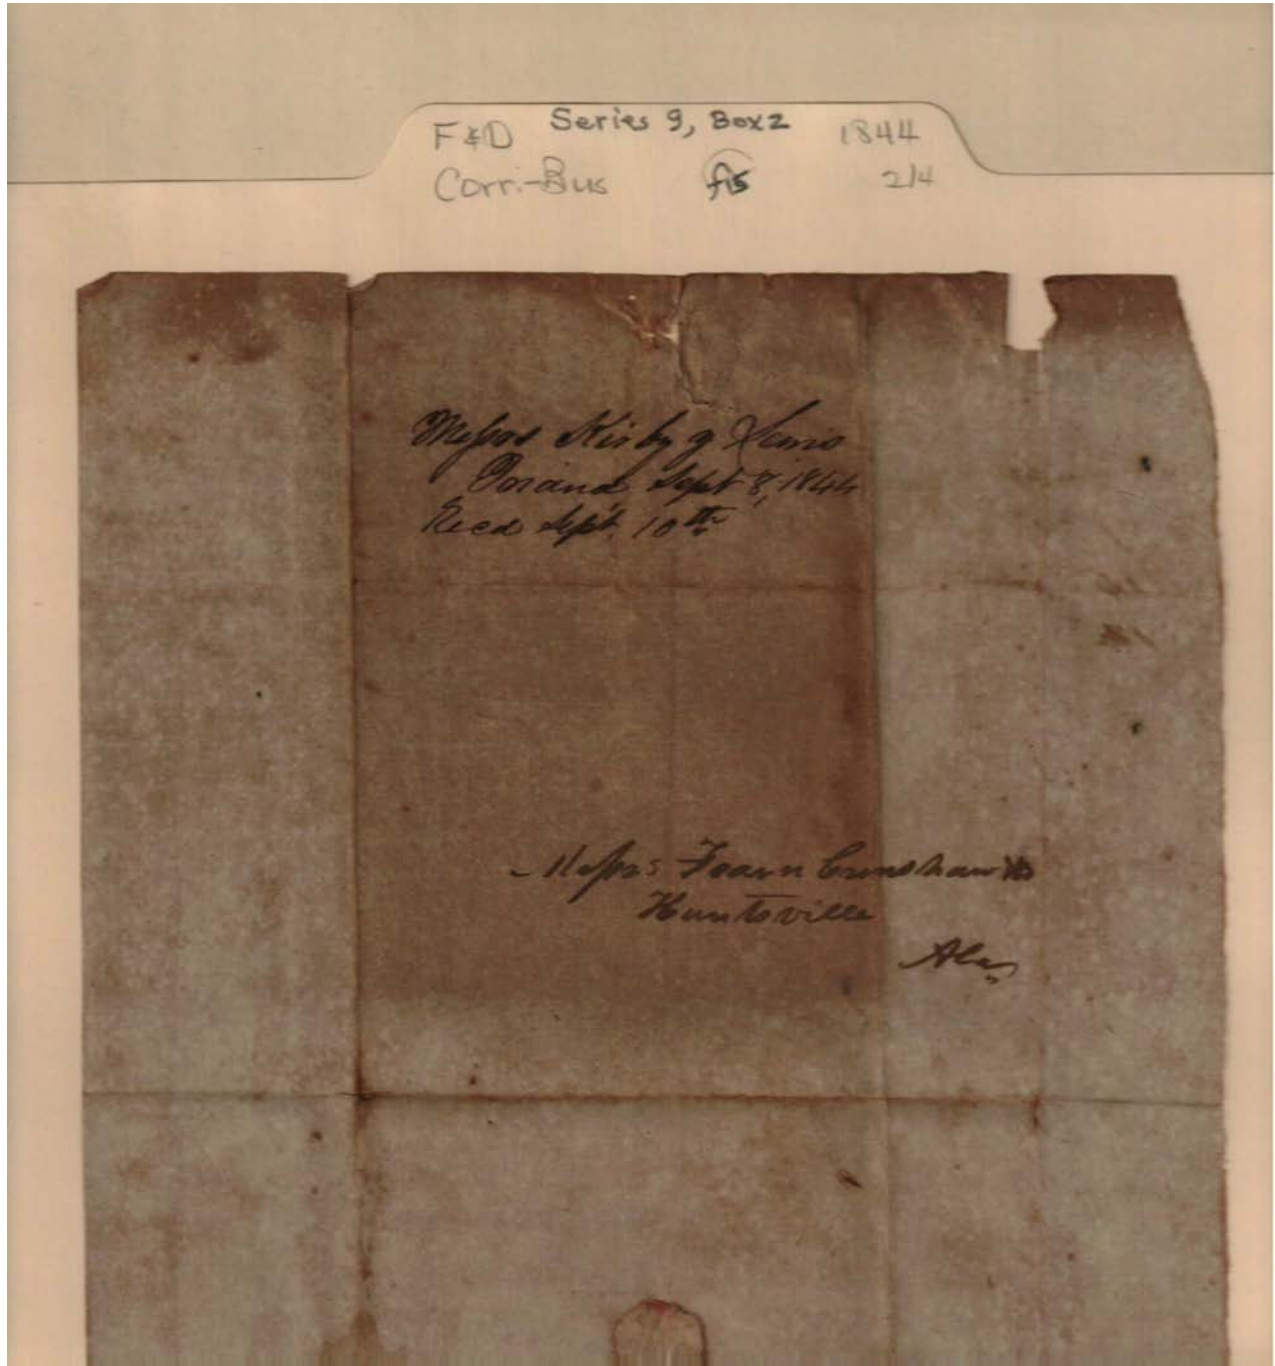 F&D Series 9, Box 2 1844
Corri-Bus f15 2/4
Messrs Kirby & Lewis
Sept 8, 1844
Recd Sept. 10th
Messrs Fearn Crenshaw
Huntsville
Ala